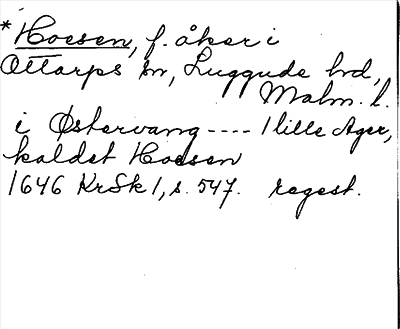 * Hoesen, f. åker i
Ottarps sn, Luggude hd,
Malm. l.
i Østervang ---- 1 lille Ager,
kaldet Hoesen
1646 KrSk 1, s. 547. regest.